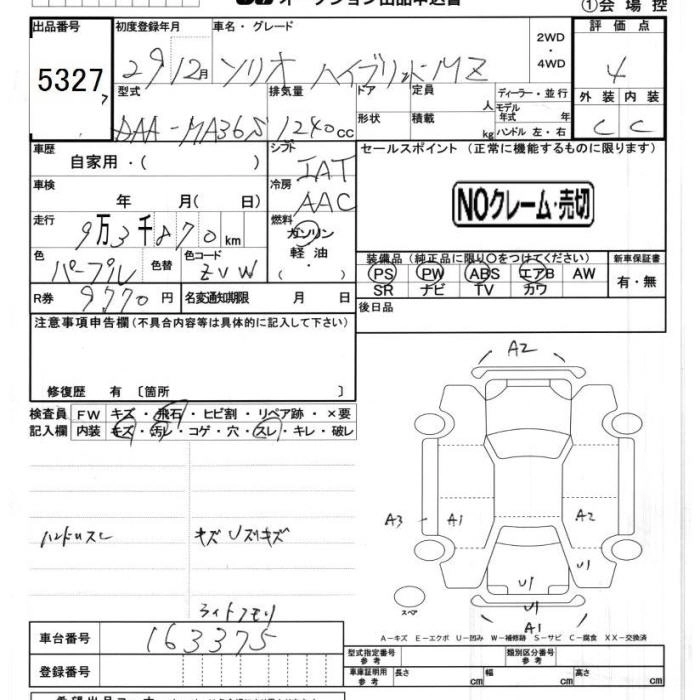 オークション出品申込書
①会場控
出品番号 初度登録年月 車名・グレード 2WD・4WD 評価点
5327 29 12月 ソリオ ハイブリットMZ 4
型式 排気量 ドア 定員 人 ディーラー・並行 外装 内装
DAA-MA36S 1240cc 形状 積載 kg モデル年式 年 ハンドル 左・右 C C
車歴 自家用・( ) シフト IAT セールスポイント (正常に機能するものに限ります)
車検 年 月( 日) 冷房 AAC NOクレーム・売切
走行 9万3千870km 燃料 ガソリン・軽油・( )
色 パープル 色替 色コード ZVW
装備品 (純正品に限り〇をつけてください) 新車保証書
PS PW ABS エアB AW 有・無
SR ナビ TV カワ
R券 9770円 名変通知期限 月 日 後日品
注意事項申告欄(不具合内容等は具体的に記入して下さい)
修復歴 有 〔箇所 〕
検査員 FW キズ・飛石・ヒビ割・リペア跡・×要
記入欄 内装 キズ・汚レ・コゲ・穴・スレ・キレ・破レ
A2
ハンドルスレ キズ Uズリキズ
A3 A1 A2
U1
U1
スペア
U1
A1
ライトクモリ
A-キズ E-エクボ U-凹み W-補修跡 S-サビ C-腐食 XX-交換済
車台番号 163375
型式指定番号 参考 類別区分番号 参考
登録番号 車庫証明用 参考 長さ cm 幅 cm 高さ cm